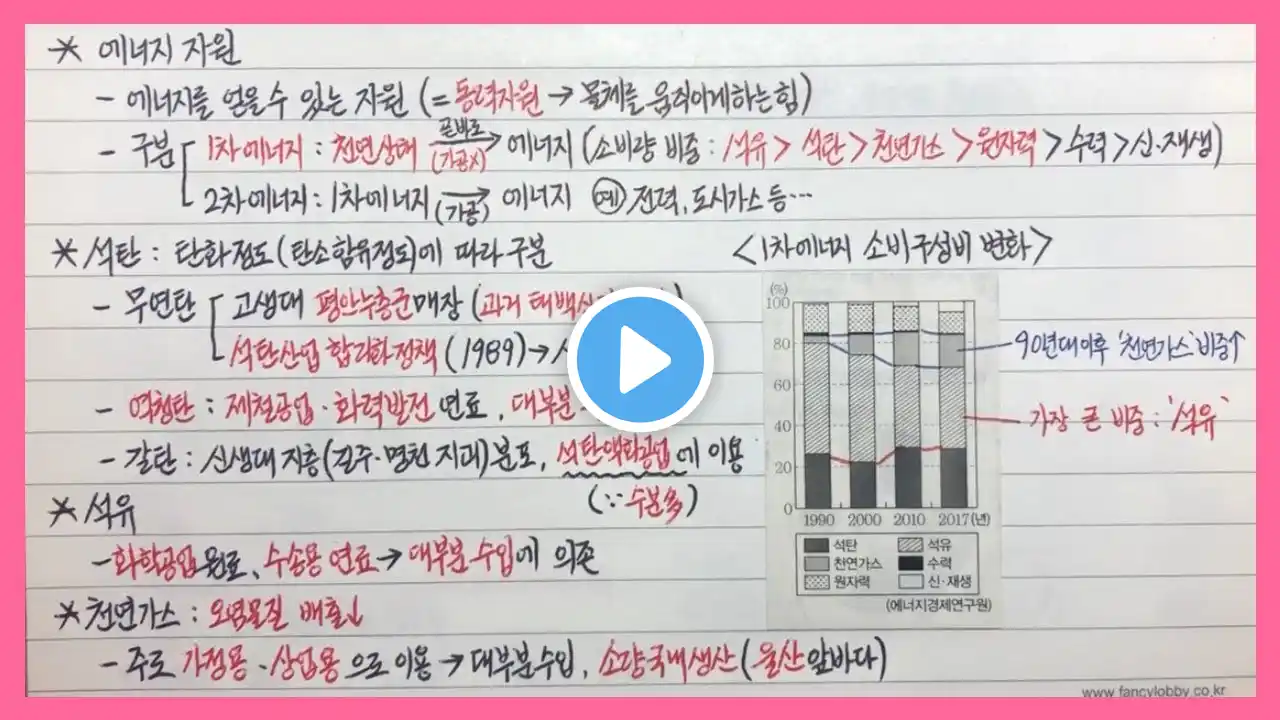 * 에너지 자원
- 에너지를 얻을 수 있는 자원 (= 동력자원 → 물체를 움직이게하는 힘)
- 구분
1차 에너지 : 천연상태 곧바로 (가공X) → 에너지 (소비량 비중 : 석유 > 석탄 > 천연가스 > 원자력 > 수력 > 신·재생)
2차 에너지 : 1차 에너지 → (가공) 에너지 예) 전력, 도시가스 등…
* 석탄 : 탄화정도 (탄소함유정도)에 따라 구분
- 무연탄
고생대 평안누층군 매장 (과거 태백산
석탄산업 합리화정책 (1989) →
- 역청탄 : 제철공업 · 화력발전 연료, 대부분
- 갈탄 : 신생대 지층 (길주·명천 지괴) 분포, 석탄액화공업에 이용
(∵ 수분多)
* 석유
- 화학공업 원료, 수송용 연료 → 대부분 수입에 의존
* 천연가스 : 오염물질 배출↓
- 주로 가정용 · 상업용으로 이용 → 대부분 수입, 소량 국내생산 (울산 앞바다)
<1차 에너지 소비구성비 변화>
(%)
100
80
60
40
20
0
1990 2000 2010 2017(년)
석탄 석유
천연가스 수력
원자력 신·재생
(에너지경제연구원)
90년대 이후 '천연가스' 비중↑
가장 큰 비중 : '석유'
www.fancylobby.co.kr